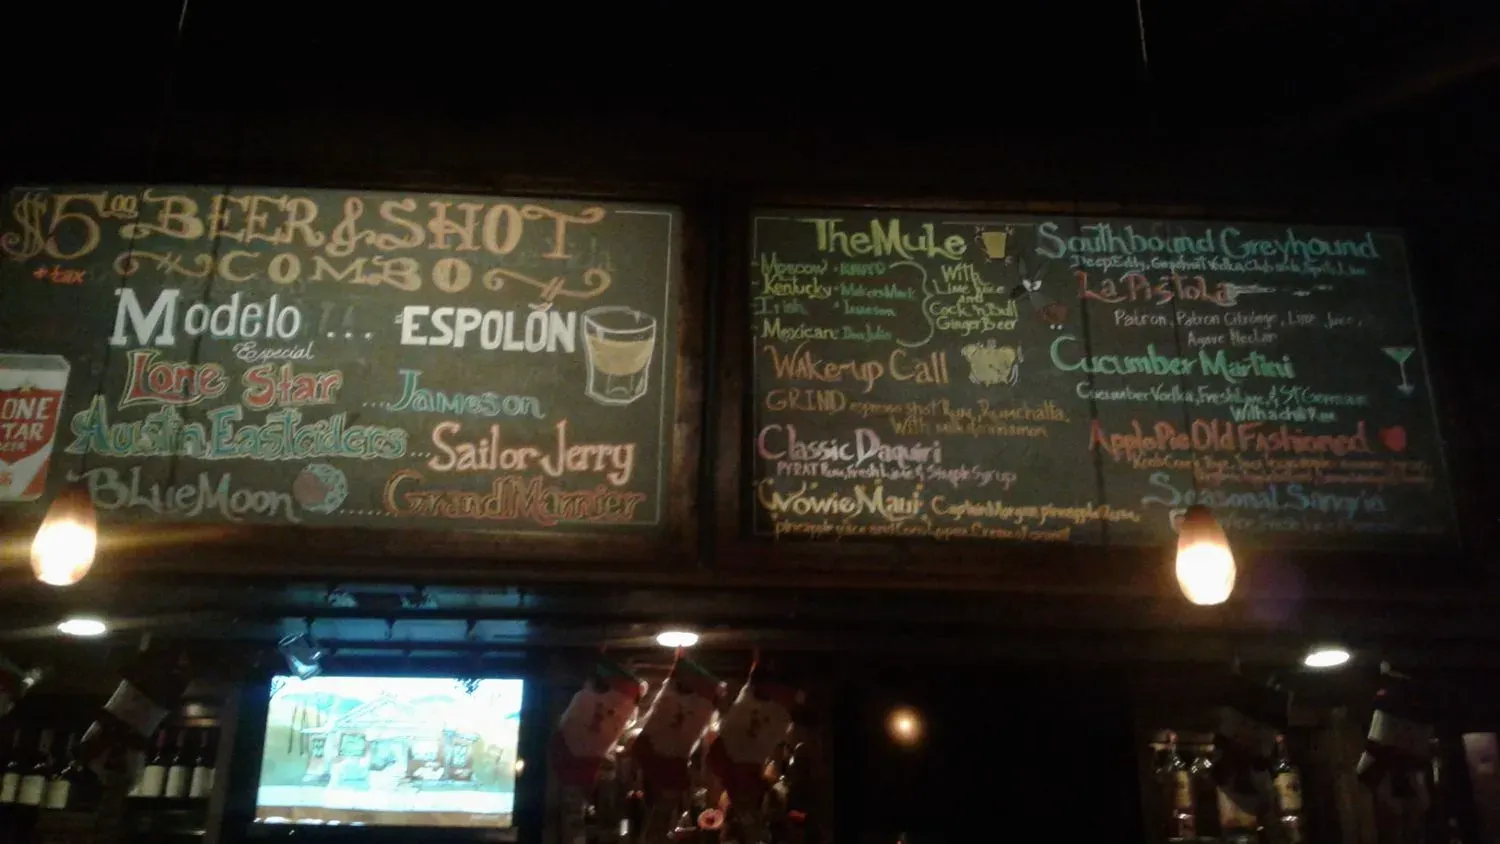 $5.00 BEER & SHOT
+tax COMBO
Modelo ... ESPOLÓN
Especial
Lone Star ....Jameson
Austin Eastciders...Sailor Jerry
Blue Moon ......Grand Marnier
ONE
TAR
BEER
The Mule
Moscow -
Kentucky - Makers Mark
Irish - Jameson
Mexican -
With
Lime Juice
and
Cock 'n Bull
Ginger Beer
Wake-up Call
GRIND espresso shot Rum, Rumchatta,
With milk & cinnamon
Classic Daquiri
PYRAT Rum, Fresh Lime & Simple Syrup
Wowie Maui Captain Morgan pineapple Rum,
pineapple juice and
Southbound Greyhound
Deep Eddy, Grapefruit Vodka, Club soda,
La Pistola
Patron, Patron Citronge, Lime Juice,
Agave Nectar
Cucumber Martini
Cucumber Vodka, Fresh Lime, & St Germain
With a chili Rim
Apple Pie Old Fashioned
Seasonal Sangria